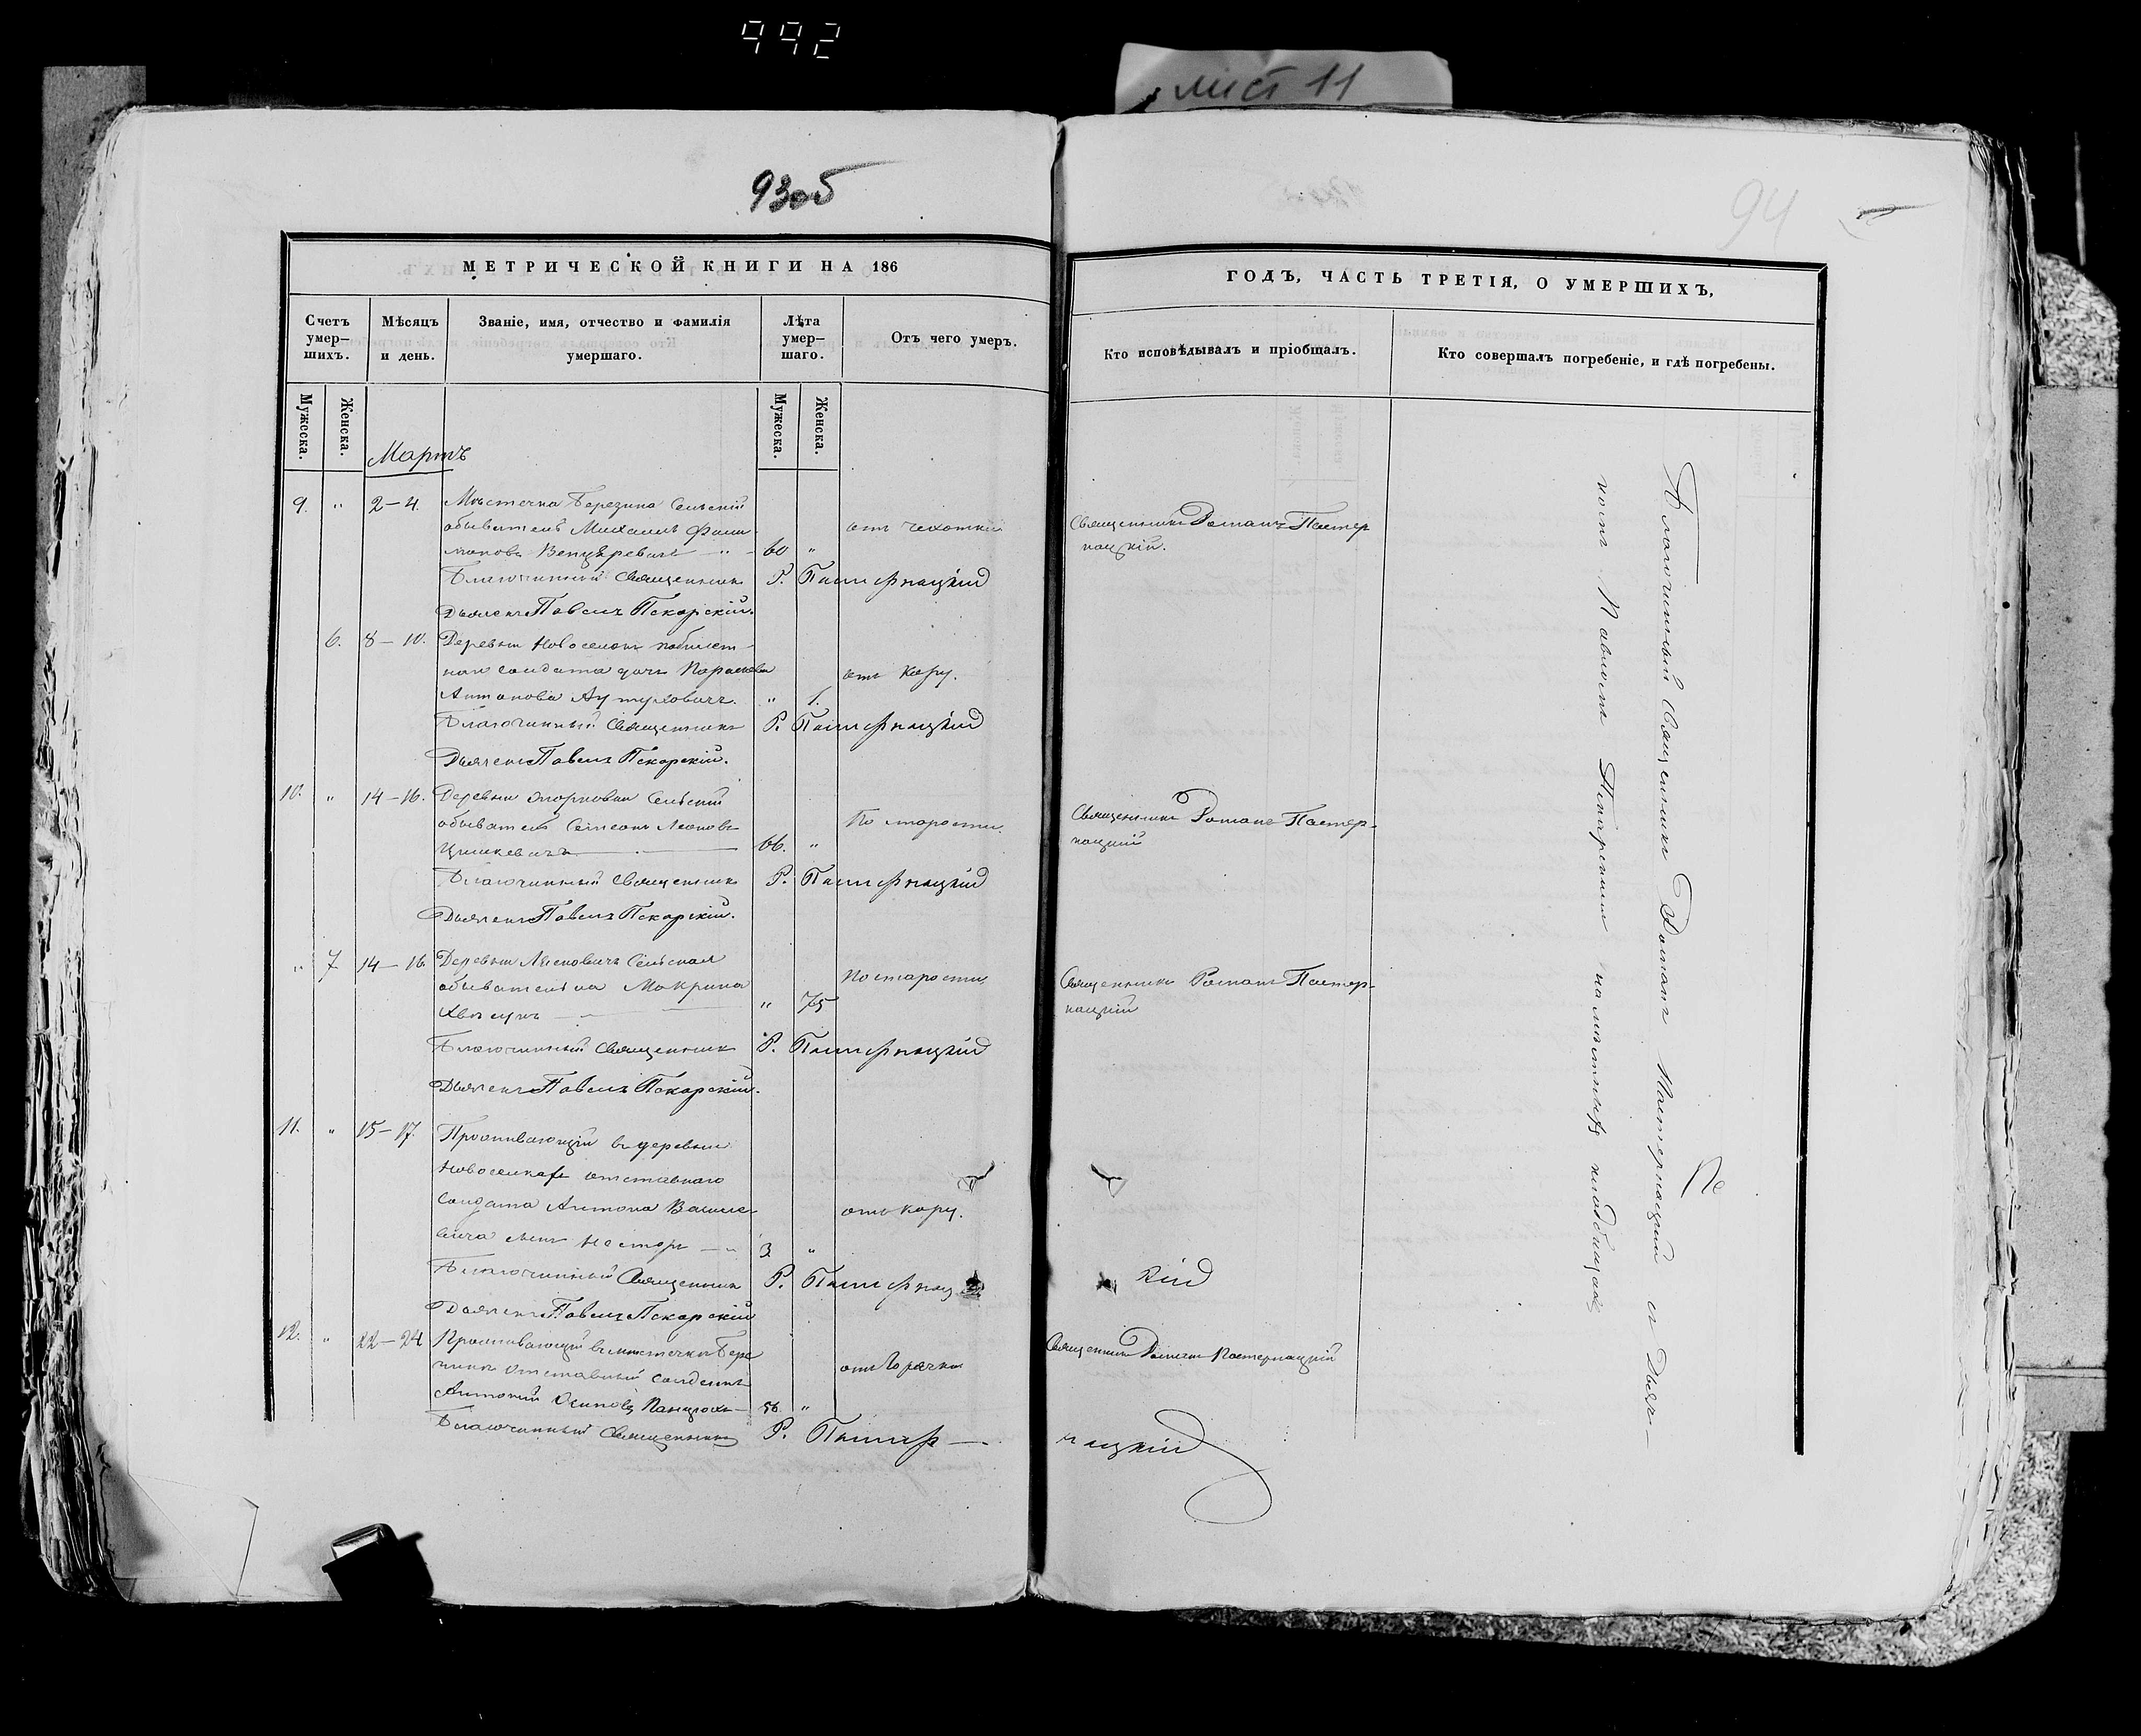 992
лист 11
93об
94
МЕТРИЧЕСКОЙ КНИГИ НА 186
Счетъ умер-шихъ.
Мѣсяцъ и день.
Званіе, имя, отчество и фамилія умершаго.
Лѣта умер-шаго.
Отъ чего умеръ.
Мужеска.
Женска.
Мужеска.
Женска.
Мартъ
9. " 2–4. Мѣстечка Березина Сельскій
обыватель Михаилъ
60 "
отъ чахотки
Благочинный Священникъ Р. Пастернацкій
Дьячекъ Павелъ Пекарскій.
6. 8–10. Деревни Новоселокъ
солдата дочь Параскева
Антонова " 1.
отъ кору.
Благочинный Священникъ Р. Пастернацкій
Дьячекъ Павелъ Пекарскій.
10. " 14–16. Деревни Сельскій
обыватель Симеонъ Леоновъ
66. "
По старости.
Благочинный Священникъ Р. Пастернацкій
Дьячекъ Павелъ Пекарскій.
" 7 14–16. Деревни Сельская
обывателька Макрина
" 75
По старости
Благочинный Священникъ Р. Пастернацкій
Дьячекъ Павелъ Пекарскій.
11. " 15–17. Проживающій въ деревни
Новоселкахъ отставнаго
солдата Антона
сынъ Несторъ 3 "
отъ кору.
Благочинный Священникъ Р. Пастернац
кій
Дьячекъ Павелъ Пекарскій
12. " 22–24 Проживающій въ мѣстечкѣ Бере
отставный солдатъ
Антоній Осиповъ
58. "
отъ Горячки
Благочинный Священникъ Р. Пастер—
нацкій
ГОДЪ, ЧАСТЬ ТРЕТІЯ, О УМЕРШИХЪ,
Кто исповѣдывалъ и пріобщалъ.
Кто совершалъ погребеніе, и гдѣ погребены.
Священникъ Романъ Пастер
нацкій.
Священникъ Романъ Пастер-
нацкій
Священникъ Романъ Пастер-
нацкій
Священникъ Романъ Пастернацкій
Благочинный Священникъ Романъ Пастернацкій съ Дьяч-
комъ Павломъ Пекарскимъ на кладбищахъ